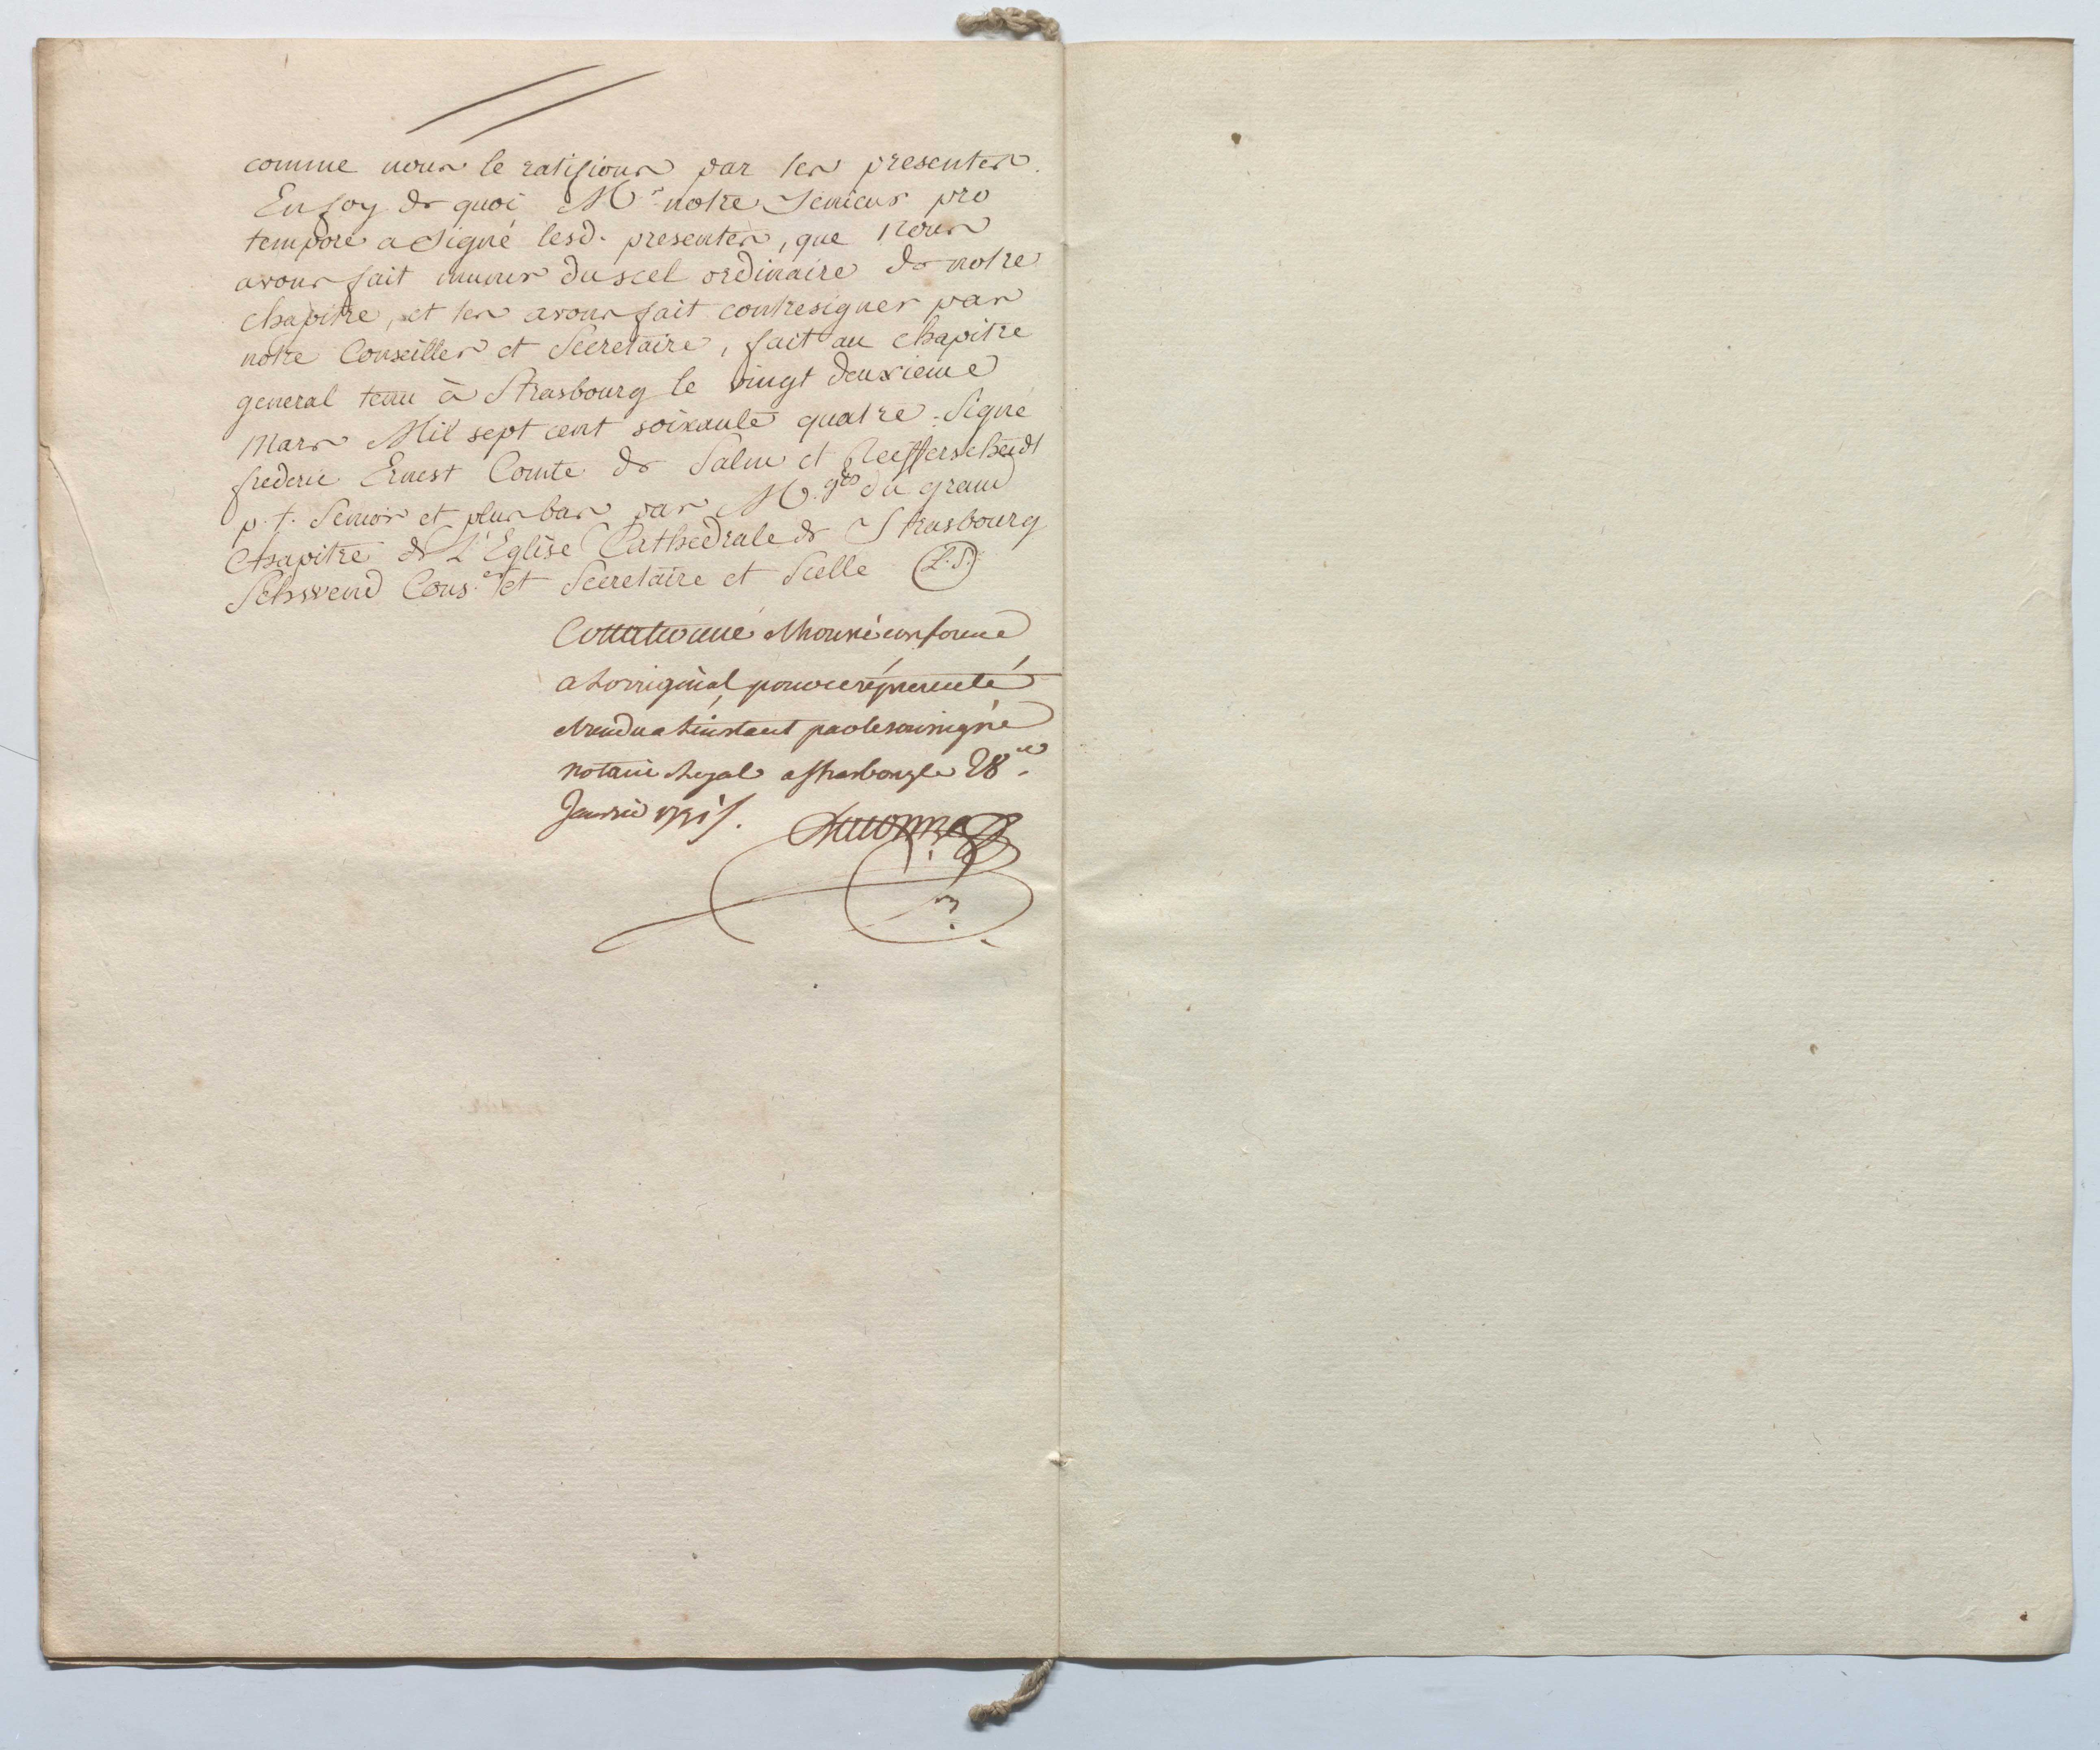 comme nous le ratifions par les presentes.
En foy de quoi M.r notre Senieur pro
tempore a Signé lesd. presentes, que Nous
avons fait munir du scel ordinaire de notre
chapitre, et les avons fait contresigner par
notre Conseiller et Secretaire, fait au chapitre
general tenu à Strasbourg le vingt deuxieme
Mars Mil sept cent soixante quatre. Signé
frederic Ernest Comte de Salm et Reifferscheidt
p. t. Senior et plus bas par M.grs du grand
Chapitre de L'Eglise Cathedrale de Strasbourg
Schwend Cons.er et Secretaire et Scellé L.S.
Collationné & trouvé conforme
a Lorriginal pour ce répresenté
et rendu a Linstant par le soussigné
notaire Royal a Strasbourg le 28.e
Janvier 1791 /.